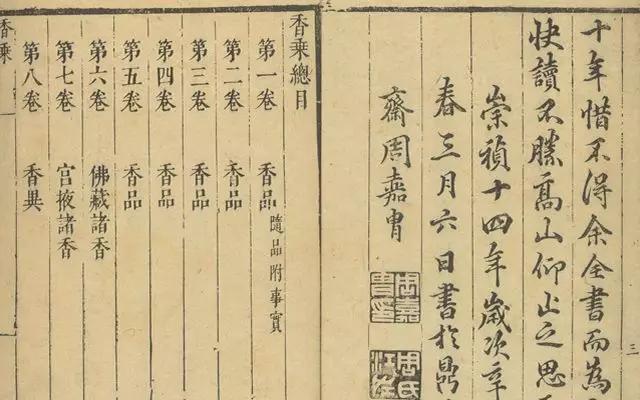 三
十年惜不得余全書而為
快讀不勝高山仰止之思
崇禎十四年歲次辛
春三月六日書於鼎
齋周嘉胄
周嘉胄印
周氏江左
香乘總目
第一卷 香品 隨品附事實
第二卷 香品
第三卷 香品
第四卷 香品
第五卷 香品
第六卷 佛藏諸香
第七卷 宮掖諸香
第八卷 香異
香乘